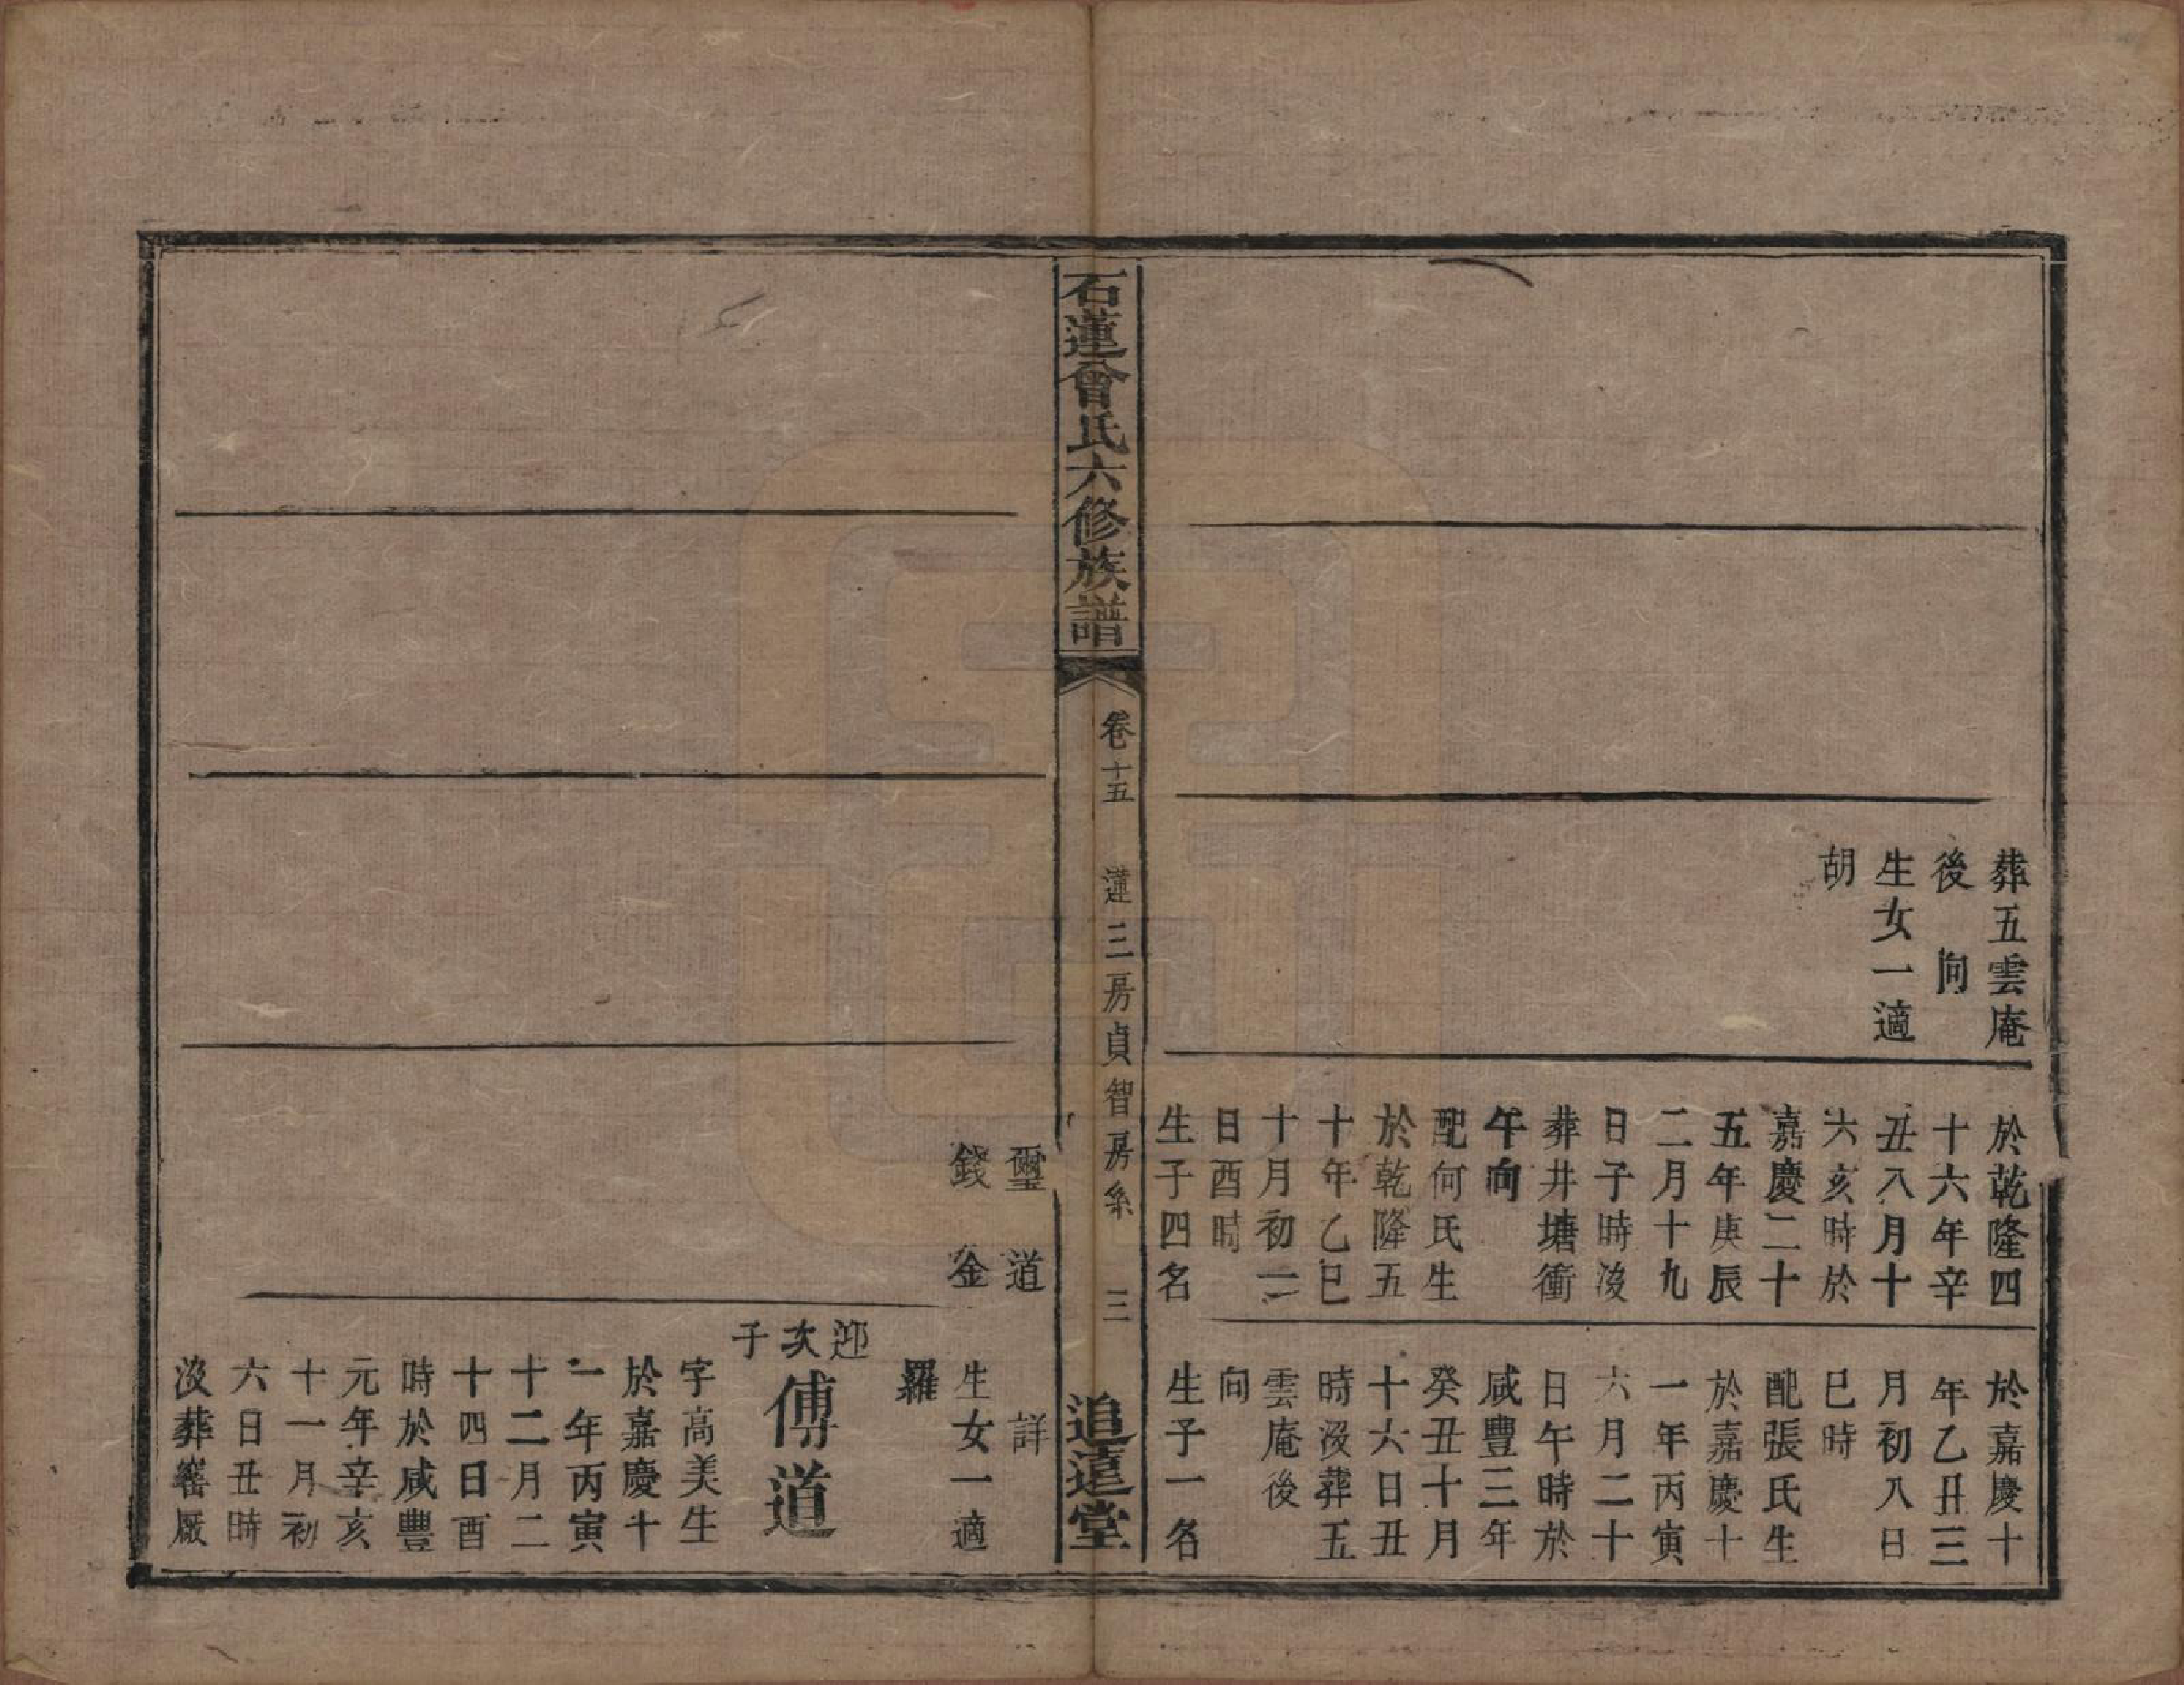 葬五雲庵
後　向
生女一適
胡
於乾隆四
十六年辛
丑八月十
六亥時於
嘉慶二十
五年庚辰
二月十九
日子時沒
葬井塘衝
午向
配何氏生
於乾隆五
十年乙巳
十月初二
日酉時
生子四名
於嘉慶十
年乙丑三
月初八日
巳時
配張氏生
於嘉慶十
一年丙寅
六月二十
日午時於
咸豐三年
癸丑十月
十六日丑
時沒葬五
雲庵後
向
生子一名
石蓮曾氏六修族譜
卷十五
蓮三房貞智房系
三
追遠堂
璽　道
錢　金
詳
生女一適
羅
迎次子
傅道
字高美生
於嘉慶十
一年丙寅
十二月二
十四日酉
時於咸豐
元年辛亥
十一月初
六日丑時
沒葬窰厰